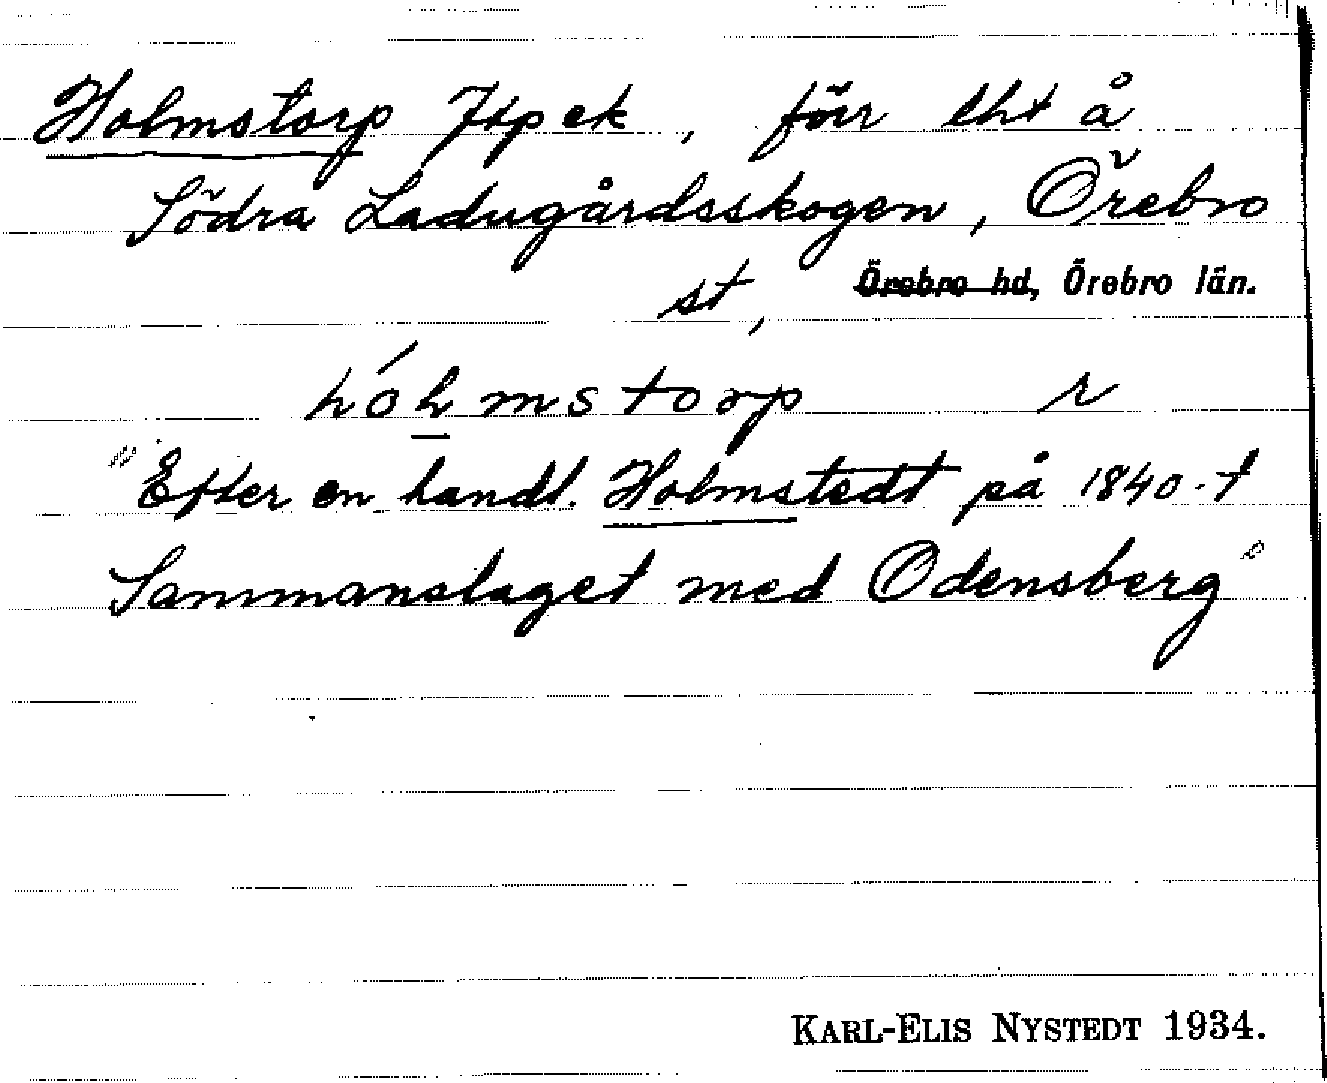 Holmstorp Jtp ek, förr lht å
Södra Ladugårdsskogen, Örebro
st, Örebro hd, Örebro län.
hólmstorp r
"Efter en handl. Holmstedt på 1840-t
Sammanslaget med Odensberg"
KARL-ELIS NYSTEDT 1934.